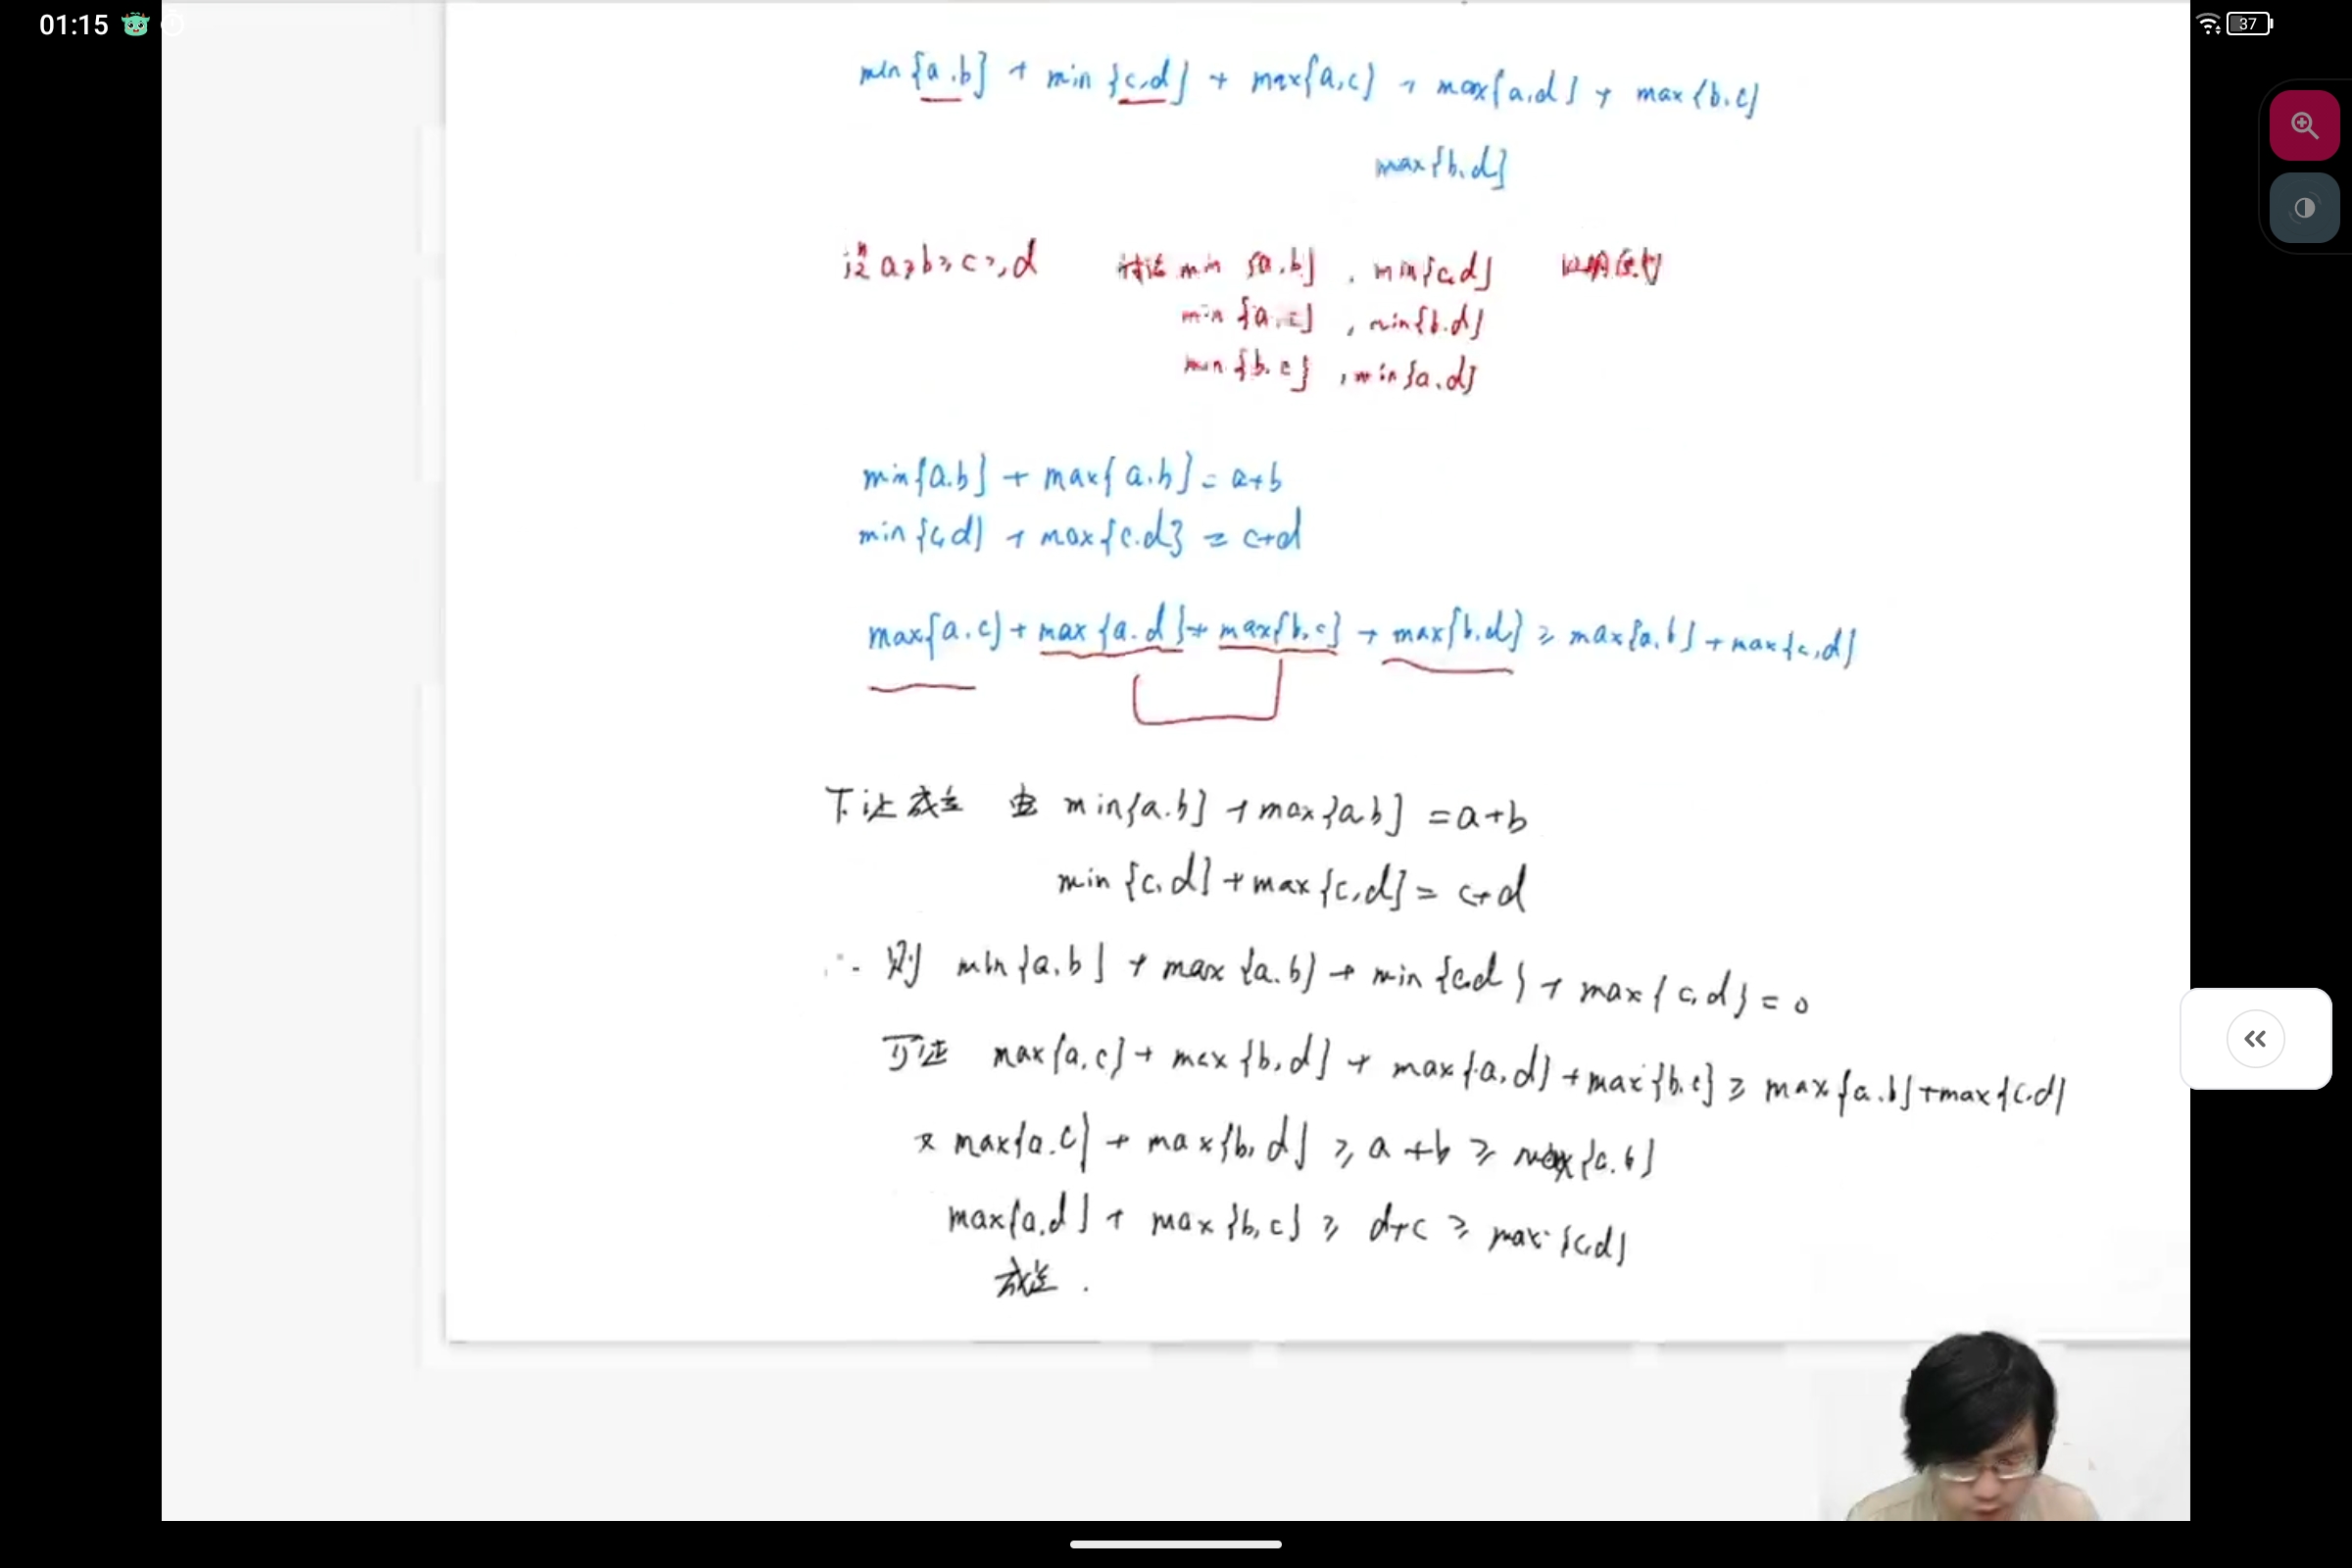 01:15
37
min{a,b} + min{c,d} + max{a,c} + max{a,d} + max{b,c}
max{b,d}
设 a≥b≥c≥d 讨论 min {a,b} , min{c,d}
min {a,c} , min{b,d}
min {b,c} , min{a,d}
min{a,b} + max{a,b} = a+b
min{c,d} + max{c,d} = c+d
max{a,c} + max{a,d} + max{b,c} + max{b,d} ≥ max{a,b} + max{c,d}
下证成立 由 min{a,b} + max{a,b} = a+b
min {c,d} + max{c,d} = c+d
∴ 则 min{a,b} + max{a,b} + min{c,d} + max{c,d} = 0
下证 max{a,c} + max{b,d} + max{a,d} + max{b,c} ≥ max{a,b} + max{c,d}
又 max{a,c} + max{b,d} ≥ a+b ≥ max{a,b}
max{a,d} + max{b,c} ≥ d+c ≥ max{c,d}
成立.